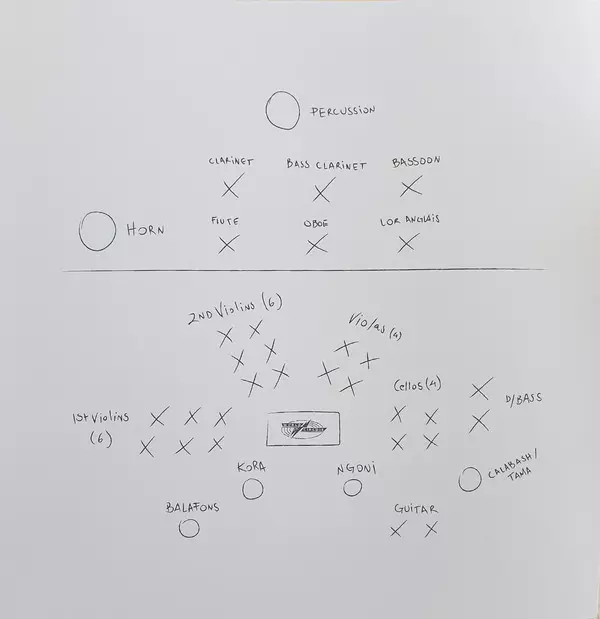 PERCUSSION
CLARINET
BASS CLARINET
BASSOON
HORN
FLUTE
OBOE
COR ANGLAIS
2ND Violins (6)
Violas (4)
Cellos (4)
D/BASS
1st Violins
(6)
WORLD
CIRCUIT
KORA
NGONI
CALABASH/
TAMA
BALAFONS
GUITAR